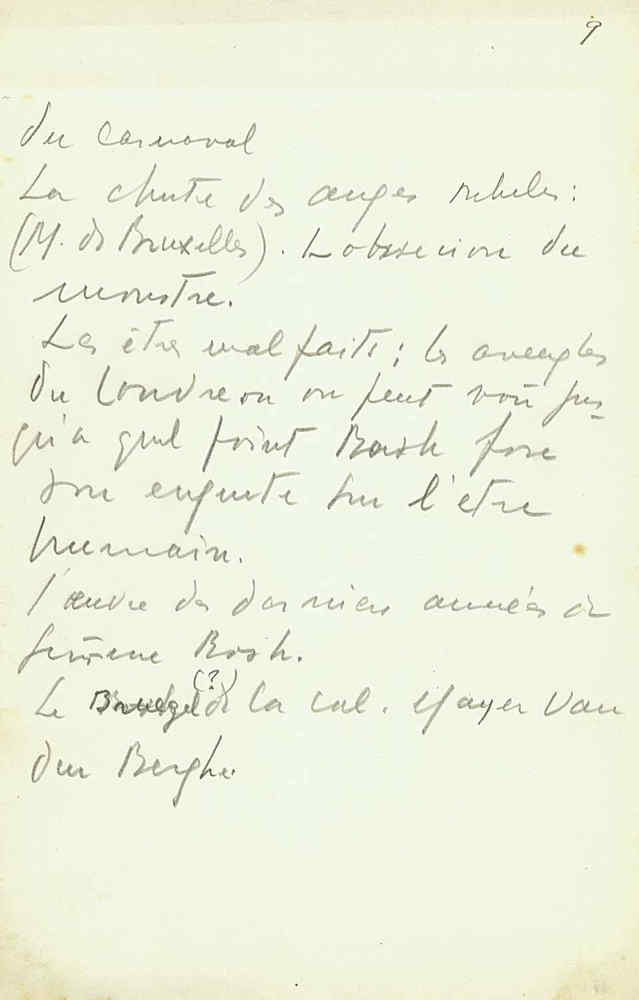 9
du carnaval
La chute des anges rebeles :
(M. de Bruxelles). L obsession du
monstre.
Les êtres mal faits ; les aveugles
du Louvre ou on peut voir jus-
qu'a quel point Bosh fore
son enquete sur l'etre
humain.
l'œuvre des dernieres années de
Jerome Bosh.
(?)
Le Bruegel de la col. Mayer Van
den Berghe.